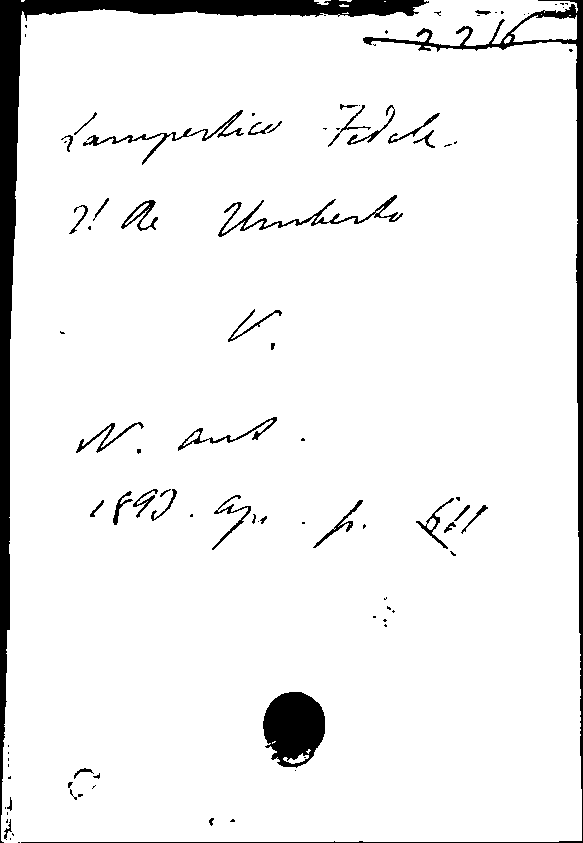 2216
Lampertico Fedele
Il Re Umberto
V.
N. ant.
1893. ap. p. 611